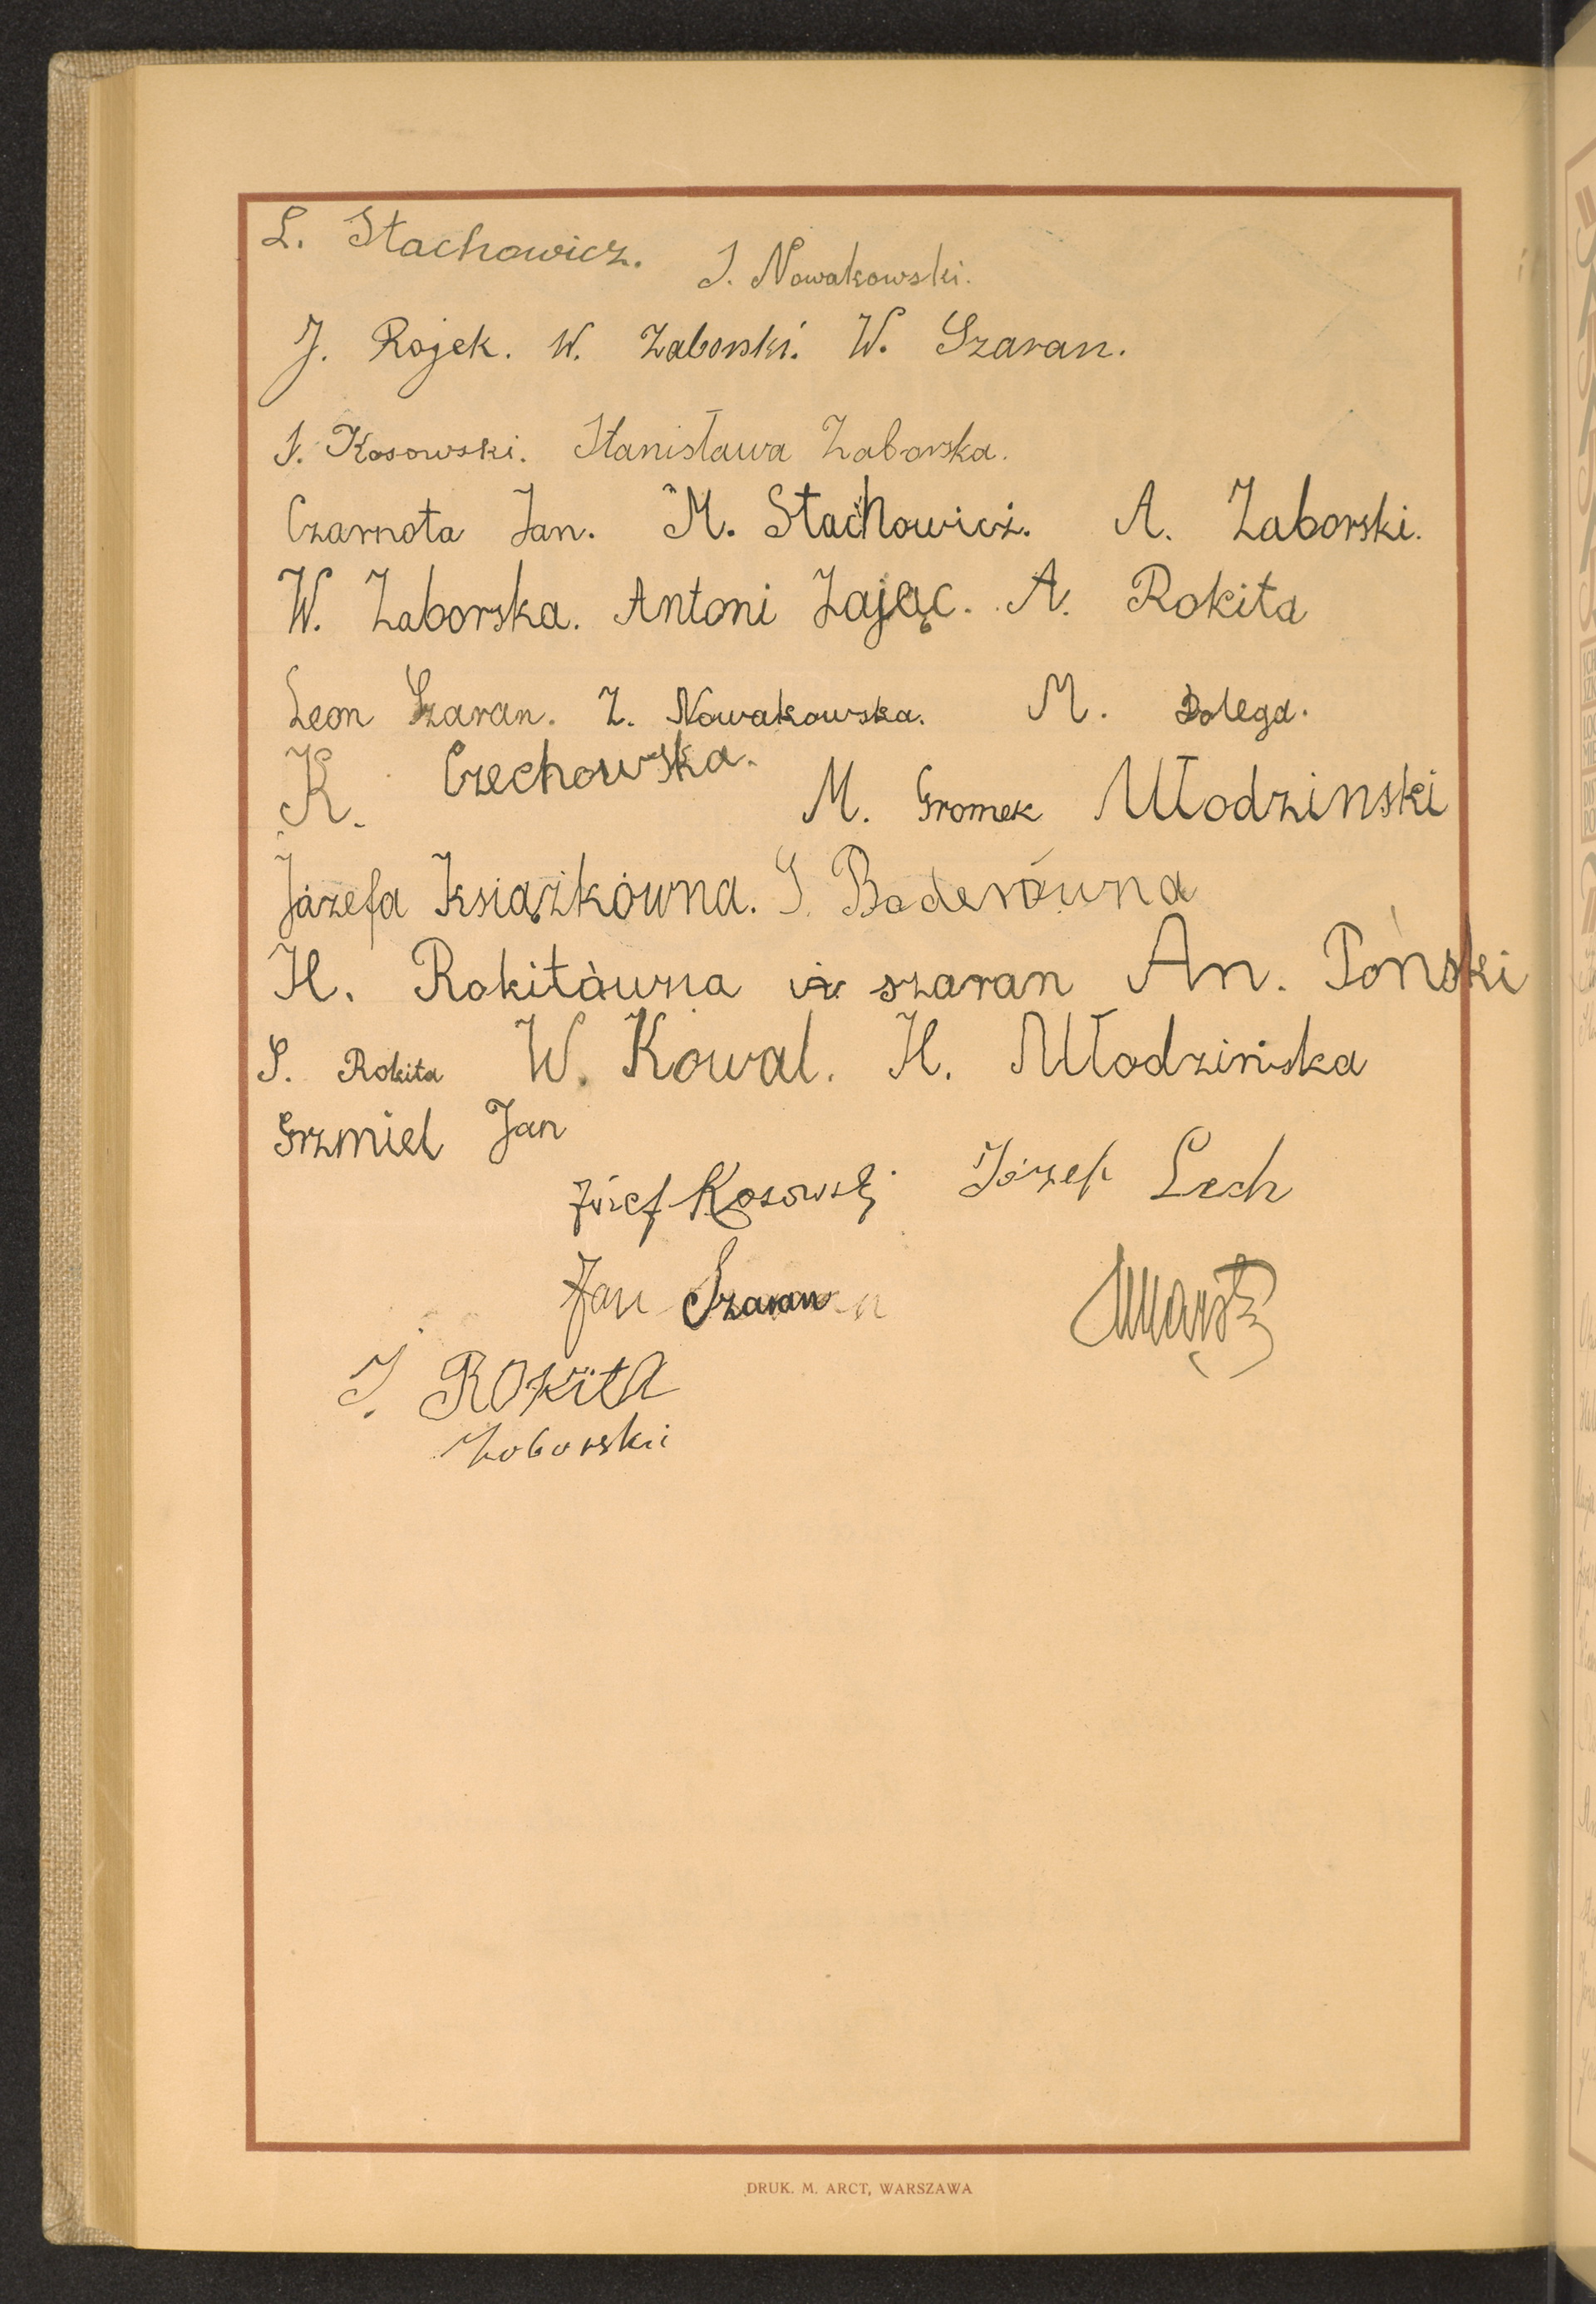 L. Stachowicz. J. Nowakowski.
J. Rojek. W. Zaborski. W. Szaran.
J. Kosowski. Stanisława Zaborska.
Czarnota Jan. M. Stachowicz. A. Zaborski.
W. Zaborska. Antoni Zając. A. Rokita
Leon Szaran. Z. Nowakowska. M. Dolega.
K. Czechowska. M. Gromek Młodzinski
Józefa Książkówna. S. Baderówna
H. Rokitówna szaran An. Poński
S. Rokita W. Kowal. H. Młodzińska
Grzmiel Jan
Józef Kosowski Józef Lech
Jan Szaran
J. Rokita
Zoborski
DRUK. M. ARCT, WARSZAWA